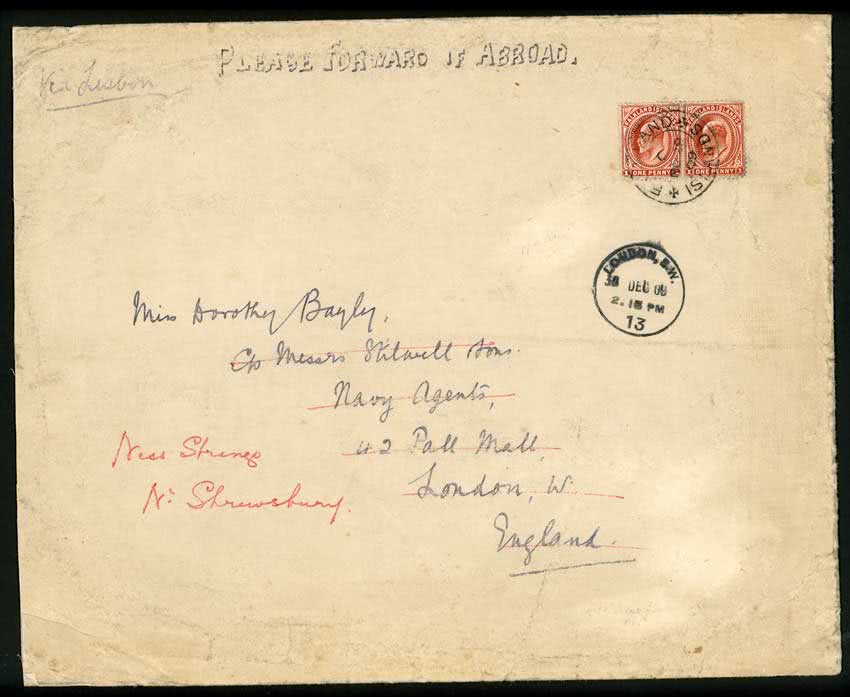 PLEASE FORWARD IF ABROAD.
Via Lisbon
FALKLAND ISLANDS FALKLAND ISLANDS
ONE PENNY ONE PENNY
LONDON, S.W.
30 DEC 09
2.15 PM
13
Miss Dorothy Bayly,
c/o Messrs Stilwell Sons.
Navy Agents,
42 Pall Mall,
London, W.
England.
Ness Strange
Nr Shrewsbury.